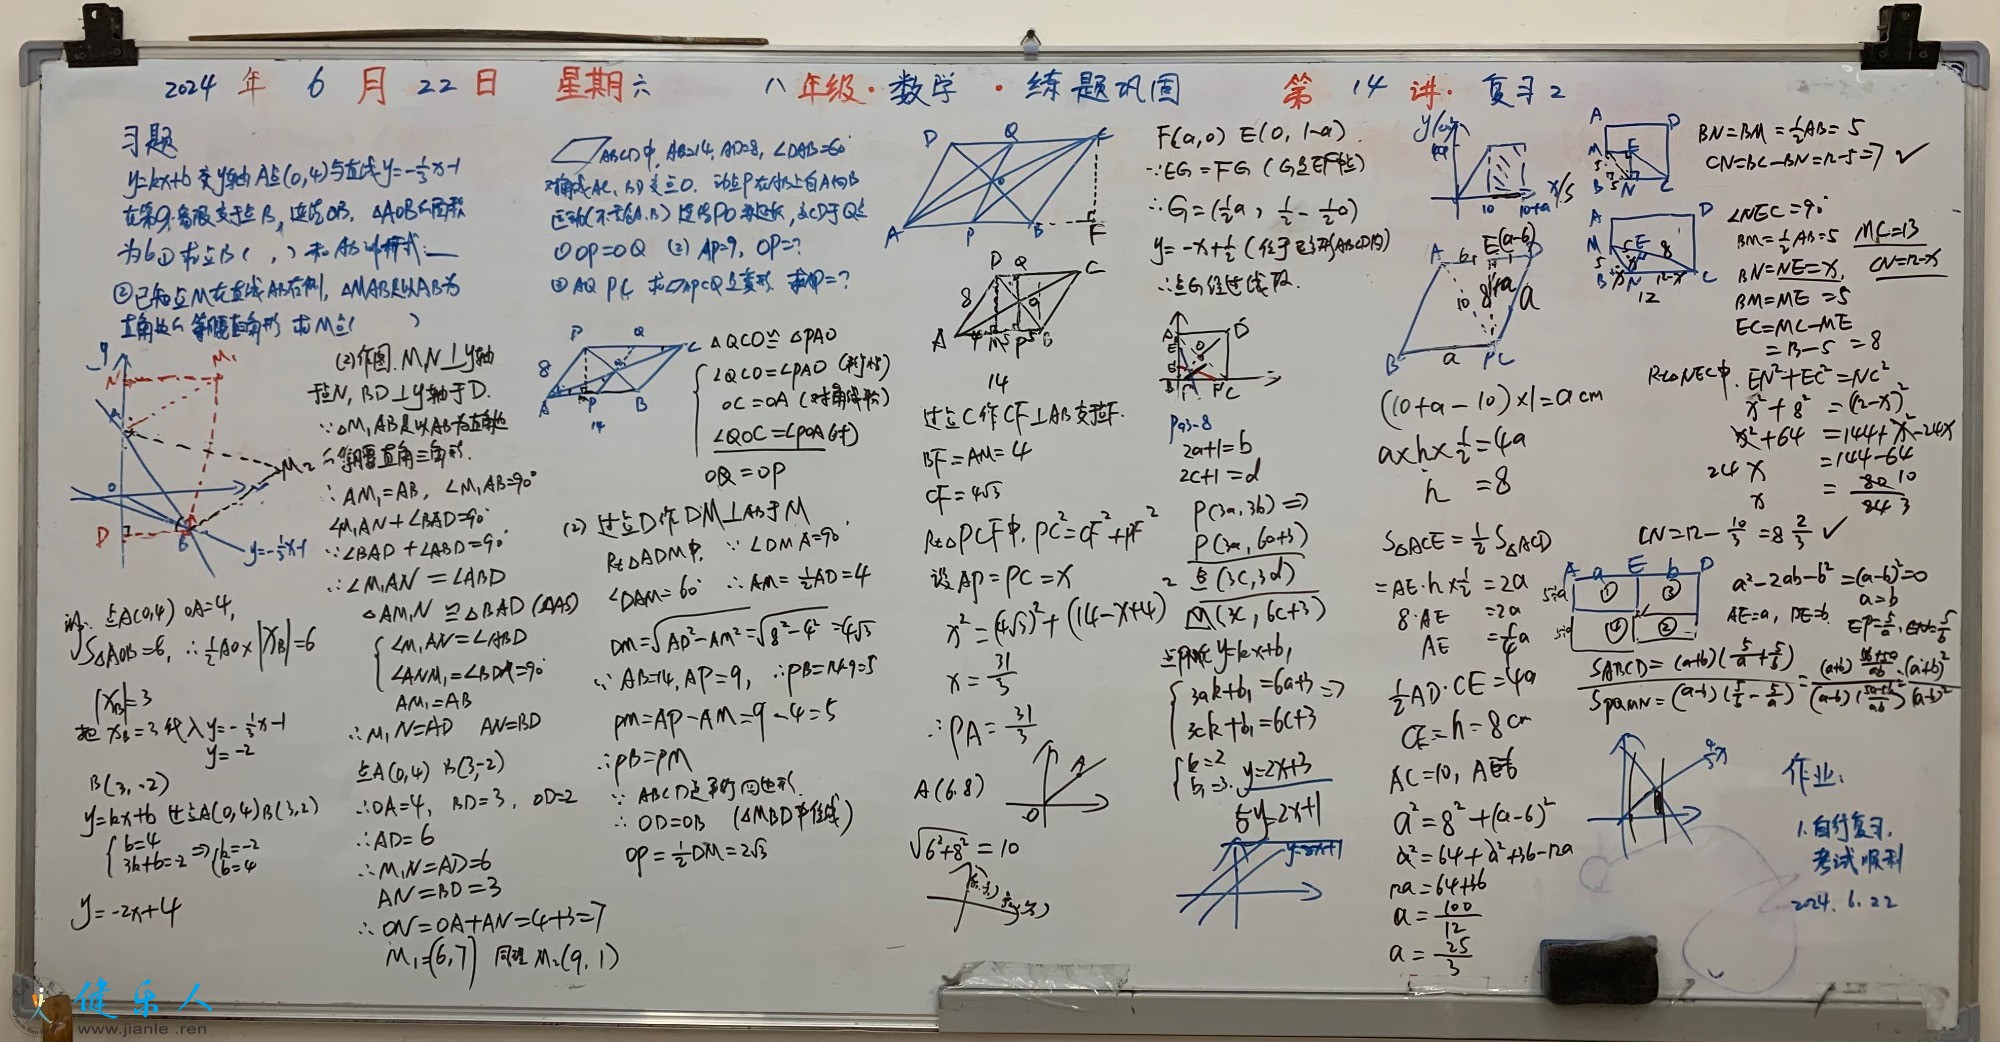 2024 年 6 月 22 日 星期六 八年级·数学·练题巩固 第 14 讲·复习2
习题
y=kx+b 交y轴A点(0,4)与直线y=-⅓x-1
在第四象限交于点B, 连结OB, △AOB的面积
为6 ① 求点B( , ) 和 AB
②已知点M在直线AB右侧, △MAB是以AB为
直角边的等腰直角形 求M点( )
y
N
M₁
A
M₂
O
D
B
y=-⅓x-1
点A(0,4) OA=4,
S△AOB=6, ∴½AO×|XB|=6
|XB|=3
把 XB=3代入y=-⅓x-1
y=-2
B(3,-2)
y=kx+b 过点A(0,4)B(3,2)
b=4
3k+b=-2 ⇒ k=-2
b=4
y=-2x+4
(2)作图. MN⊥y轴
于点N, BD⊥y轴于D.
∵△M₁AB是以AB为直角边
的等腰直角三角形.
∴AM₁=AB, ∠M₁AB=90°
∠M₁AN+∠BAD=90°
∵∠BAD+∠ABD=90°
∴∠M₁AN=∠ABD
△AM₁N≌△BAD (AAS)
∠M₁AN=∠ABD
∠ANM₁=∠BDA=90°
AM₁=AB
∴M₁N=AD AN=BD
点A(0,4) B(3,-2)
∴OA=4, BD=3, OD=2
∴AD=6
∴M₁N=AD=6
AN=BD=3
∴ON=OA+AN=4+3=7
M₁=(6,7) 同理 M₂(9,1)
ABCD中, AB=14, AD=8, ∠DAB=60°
对角线AC, BD交点O. 动点P在AB上自A向B
运动(不与A,B) 连结PO并延长, 交CD于Q点
①OP=OQ (2) AP=9, OP=?
③AQ PC 求▱APCQ是菱形. 求AP=?
8
14
△QCO≌△PAO
∠QCO=∠PAO
OC=OA
∠QOC=∠POA
OQ=OP
(2) 过点D作DM⊥AB于M
Rt△ADM中, ∵∠DMA=90°
∠DAM=60° ∴AM=½AD=4
DM=√AD²-AM²=√8²-4²=4√3
∵AB=14, AP=9, ∴PB=14-9=5
PM=AP-AM=9-4=5
∴PB=PM
∵ABCD是平行四边形.
∴OD=OB (△MBD中位线)
OP=½DM=2√3
D Q C
A P B F
D Q C
8
A 4 M 5 P 5 B
14
过点C作CF⊥AB交于F.
BF=AM=4
CF=4√3
Rt△PCF中, PC²=CF²+PF²
设AP=PC=x
x²=(4√3)²+(14-x+4)²
x=31/3
∴PA=31/3
A(6.8)
√6²+8²=10
F(a,0) E(0,1-a)
∵EG=FG (G是EF中点)
∴G=(½a, ½-½a)
y=-x+½ (位于正方形ABCD内)
∴点G经过线段.
P93-8
2a+1=b
2c+1=d
P(3a,3b)⇒
P(3a,6a+3)
(3c,3d)
(3c,6c+3)
y=kx+b₁
3ak+b₁=6a+3 ⇒
3ck+b₁=6c+3
k=2
b₁=3. y=2x+3
与y=2x+1
y=2x+1
y/cm
x/s
10 10+a
A 6 E (a-6) D
10 8 a
B a PC
(10+a-10)×1=a cm
a×h×½=4a
h=8
S△ACE=½S△ACD
=AE·h×½=2a
8·AE=2a
AE=¼a
½AD·CE=4a
CE=h=8cm
AC=10, AE=6
a²=8²+(a-6)²
a²=64+a²+36-12a
12a=64+36
a=100/12
a=25/3
A D
M E
B N C
BN=BM=½AB=5
CN=BC-BN=12-5=7 ✓
A D
M E 8
B N 12-x C
12
∠NEC=90°
BM=½AB=5 MC=13
BN=NE=x, CN=12-x
BM=ME=5
EC=MC-ME
=13-5=8
Rt△NEC中. EN²+EC²=NC²
x²+8²=(12-x)²
x²+64=144+x²-24x
24x=144-64
x=80/24 10/3
CN=12-10/3=8⅔ ✓
A a E b D
① ③
④ ②
a²-2ab-b²=(a-b)²=0
a=b
AE=a, DE=b.
SABCD=(a+b)(5/a+5/b)
作业:
1. 自行复习,
考试顺利
2024.6.22
健乐人
www.jianle.ren